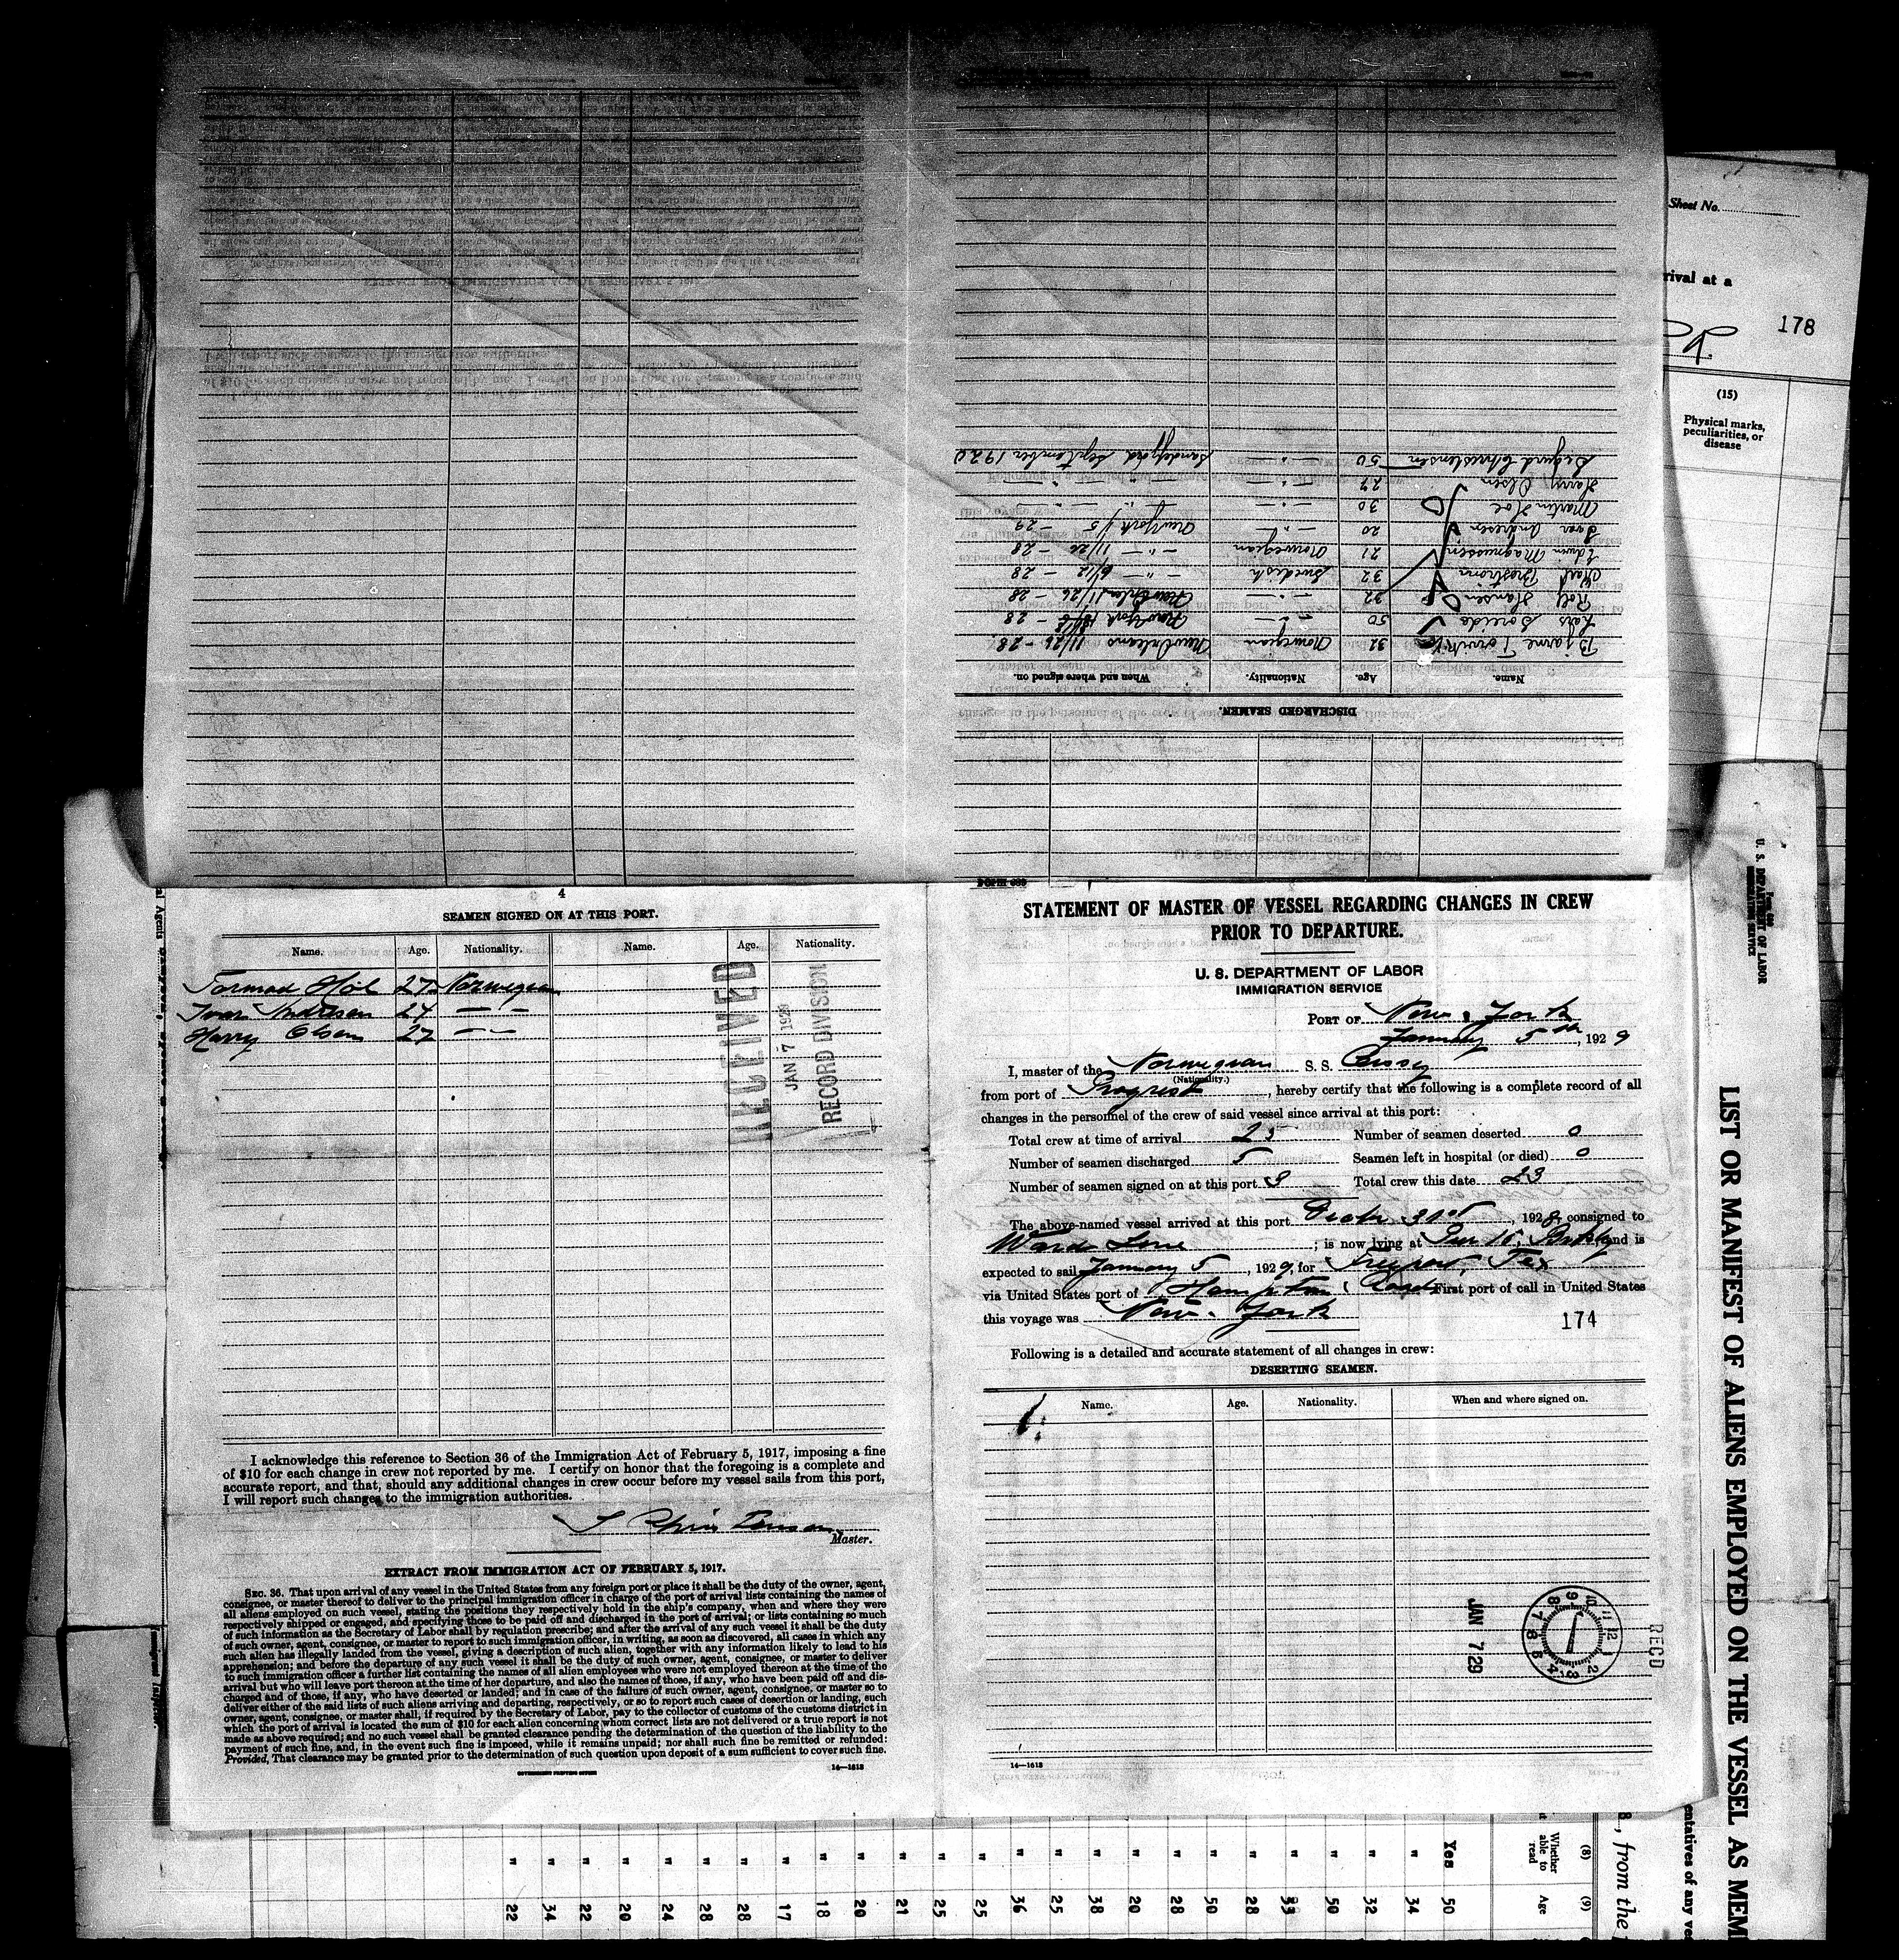 Sheet No.
rival at a
178
(15)
Physical marks,
peculiarities, or
disease
DISCHARGED SEAMEN.
Name. Age. Nationality. When and where signed on.
Bjarne 32 Norwegian New Orleans 11/26 - 28
Lars 50 — " — New York - 28
Rolf Hansen 32 — " — New Orleans 11/26 - 28
Karl 32 Swedish — " — 6/12 - 28
Edwin Magnussen 21 Norwegian — " — 11/26 - 28
Ivar Andresen 20 — " — New York 1/5 - 29
Martin 30 — " — — " —
Harry Olsen 27 — " — — " —
Sigurd Christensen 50 — " — Sandefjord September 1920
4
SEAMEN SIGNED ON AT THIS PORT.
Name. Age. Nationality. Name. Age. Nationality.
Tormod 27 Norwegian
Ivar Andresen 24 — " —
Harry Olsen 27 — " —
RECEIVED
JAN 7 1929
RECORD DIVISION
I acknowledge this reference to Section 36 of the Immigration Act of February 5, 1917, imposing a fine
of $10 for each change in crew not reported by me. I certify on honor that the foregoing is a complete and
accurate report, and that, should any additional changes in crew occur before my vessel sails from this port,
I will report such changes to the immigration authorities.
Master.
EXTRACT FROM IMMIGRATION ACT OF FEBRUARY 5, 1917.
SEC. 36. That upon arrival of any vessel in the United States from any foreign port or place it shall be the duty of the owner, agent,
consignee, or master thereof to deliver to the principal immigration officer in charge of the port of arrival lists containing the names of
all aliens employed on such vessel, stating the positions they respectively hold in the ship's company, when and where they were
respectively shipped or engaged, and specifying those to be paid off and discharged in the port of arrival; or lists containing so much
of such information as the Secretary of Labor shall by regulation prescribe; and after the arrival of any such vessel it shall be the duty
of such owner, agent, consignee, or master to report to such immigration officer, in writing, as soon as discovered, all cases in which any
such alien has illegally landed from the vessel, giving a description of such alien, together with any information likely to lead to his
apprehension; and before the departure of any such vessel it shall be the duty of such owner, agent, consignee, or master to deliver
to such immigration officer a further list containing the names of all alien employees who were not employed thereon at the time of the
arrival but who will leave port thereon at the time of her departure, and also the names of those, if any, who have been paid off and dis-
charged and of those, if any, who have deserted or landed; and in case of the failure of such owner, agent, consignee, or master so to
deliver either of the said lists of such aliens arriving and departing, respectively, or so to report such cases of desertion or landing, such
owner, agent, consignee, or master shall, if required by the Secretary of Labor, pay to the collector of customs of the customs district in
which the port of arrival is located the sum of $10 for each alien concerning whom correct lists are not delivered or a true report is not
made as above required; and no such vessel shall be granted clearance pending the determination of the question of the liability to the
payment of such fine, and, in the event such fine is imposed, while it remains unpaid; nor shall such fine be remitted or refunded:
Provided, That clearance may be granted prior to the determination of such question upon deposit of a sum sufficient to cover such fine.
GOVERNMENT PRINTING OFFICE 14—1618
STATEMENT OF MASTER OF VESSEL REGARDING CHANGES IN CREW
PRIOR TO DEPARTURE.
U. S. DEPARTMENT OF LABOR
IMMIGRATION SERVICE
PORT OF New York
January 5th, 1929
I, master of the Norwegian S. S.
(Nationality.)
from port of Progreso, hereby certify that the following is a complete record of all
changes in the personnel of the crew of said vessel since arrival at this port:
Total crew at time of arrival 25 Number of seamen deserted 0
Number of seamen discharged 5 Seamen left in hospital (or died) 0
Number of seamen signed on at this port 3 Total crew this date 23
The above-named vessel arrived at this port 31st, 1928, consigned to
Ward Line; is now lying at Pier 15, Bklyn and is
expected to sail January 5, 1929, for Freeport, Tex
via United States port of Hampton Roads First port of call in United States
this voyage was New York
174
Following is a detailed and accurate statement of all changes in crew:
DESERTING SEAMEN.
Name. Age. Nationality. When and where signed on.
RECD
JAN 7 29
14—1618
U. S. DEPARTMENT OF LABOR
IMMIGRATION SERVICE
LIST OR MANIFEST OF ALIENS EMPLOYED ON THE VESSEL AS MEM
entatives of any ves
from the
(8) (9)
Whether able to read Age
Yes 50
" 34
" 32
" 50
" 28
" 50
" 28
" 20
" 38
" 25
" 36
" 25
" 25
" 21
" 20
" 18
" 17
" 28
" 28
" 24
" 20
" 22
" 34
" 22